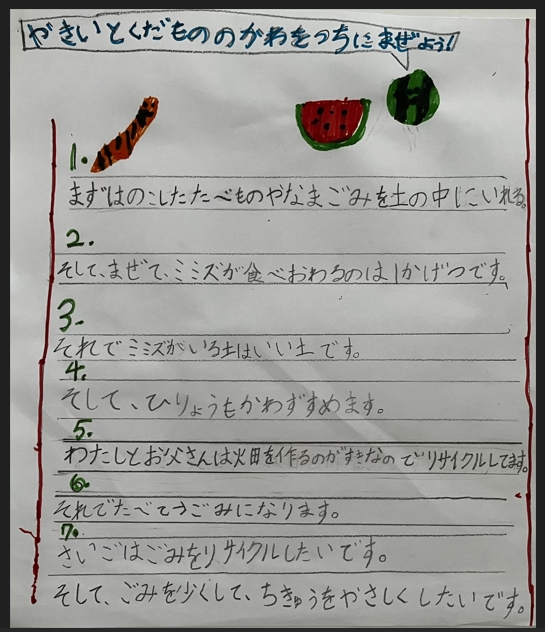 やさいとくだもののかわをつちにまぜよう!
1.
まずはのこしたたべものやなまごみを土の中にいれる。
2.
そして、まぜて、ミミズが食べおわるのは1かげつです。
3.
それでミミズがいる土はいい土です。
4.
そして、ひりょうもかわずすめます。
5.
わたしとお父さんは火田を作るのがすきなのでリサイクルしてます。
6.
それでたべてうごみになります。
7.
さいごはごみをリサイクルしたいです。
そして、ごみを少くして、ちきゅうをやさしくしたいです。